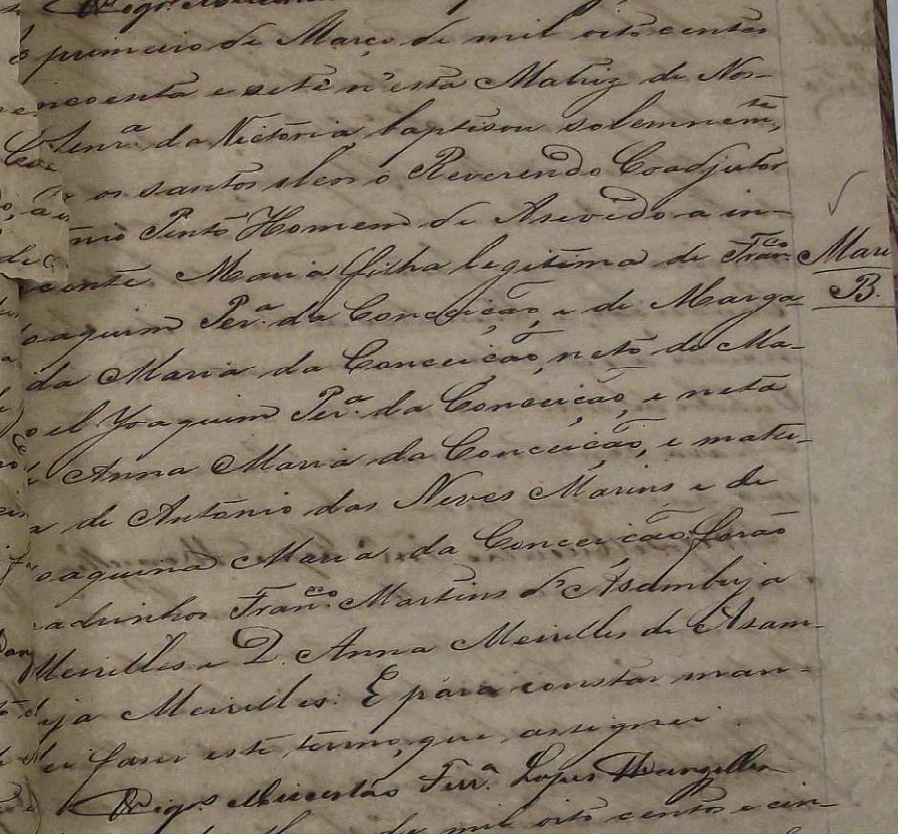 primeiro de Março de mil oito centos
encoenta e sete n'esta Matriz de Nos-
Senr.ª da Victoria baptisou solemnem.te,
os santos oleos o Reverendo Coadjutor
nio Pinto Homem de Asevedo a in-
cente Maria filha legitima de Fran.co
oaquim Per.ª da Conceição, e de Marga
da Maria da Conceição, neto de Ma-
el Joaquim Per.ª da Conceição, e neta
Anna Maria da Conceição, e mater-
de Antonio das Neves Marins e de
oaquina Maria da Conceição forão
adrinhos Fran.co Martins d'Asambuja
Meirelles e D. Anna Meirelles de Asam-
ja Meirelles. E para constar man-
ei faser este termo, que assignei
Vigr.o Ferr.ª Lopes
de mil oito centos e cin-
Mari
B.